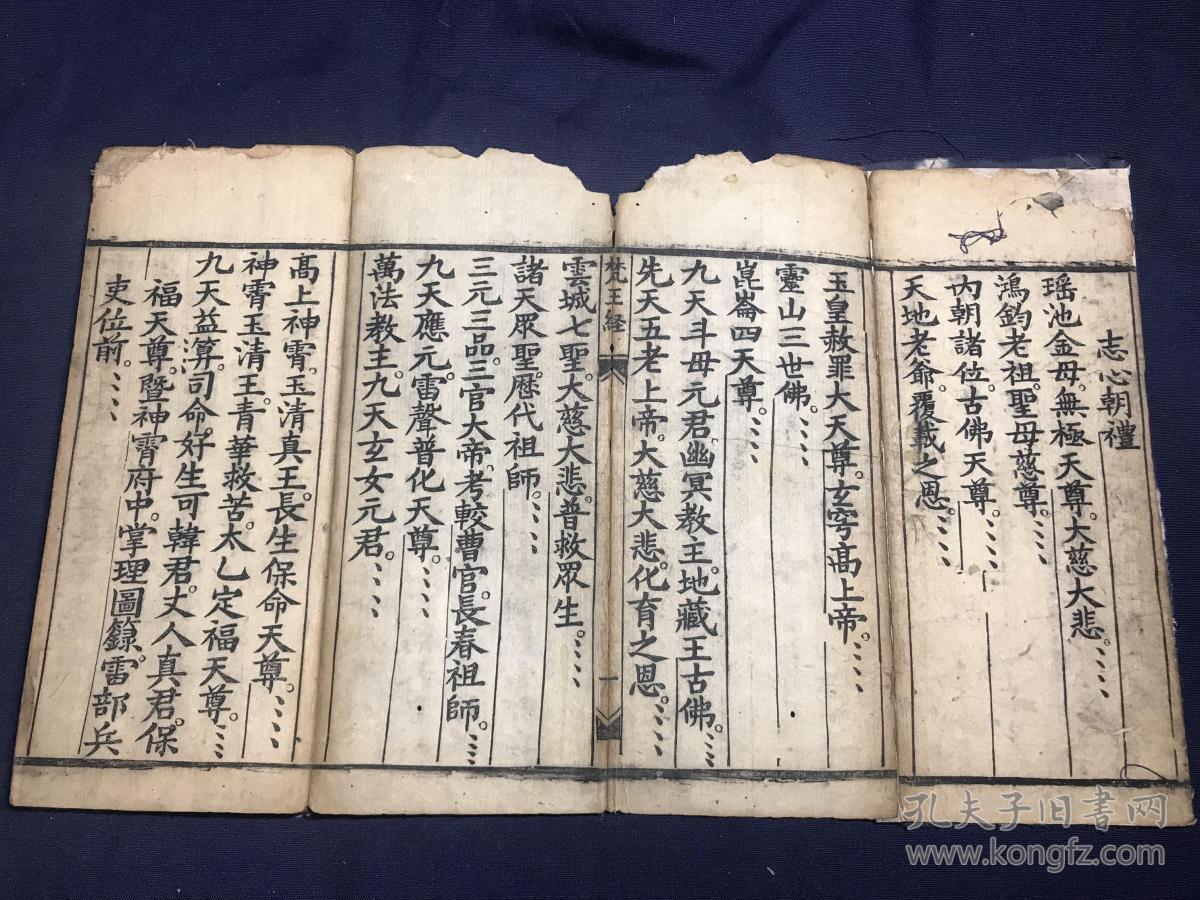 志心朝禮
瑶池金母。無極天尊。大慈大悲。、、、、
鴻鈞老祖。聖母慈尊。、、、
内朝諸位。古佛天尊。、、、、
天地老爺。覆載之恩。、、、、
玉皇赦罪大天尊。玄穹高上帝。、、、、
靈山三世佛。、、、、
崑崙四天尊。、、、、
九天斗母元君幽冥教主。地藏王古佛。、、、
先天五老上帝。大慈大悲。化育之恩。、、、、
梵王経
一
雲城七聖。大慈大悲。普救眾生。、、、、
諸天眾聖。歷代祖師。、、、、
三元三品。三官大帝。考較曹官。長春祖師。、、、、
九天應元。雷聲普化天尊。、、、、
萬法教主。九天玄女元君。、、、、
高上神霄。玉清真王。長生保命天尊。、、、、
神霄玉清王。青華救苦。太乙定福天尊。、、、
九天益筭。司命。好生可韓君。丈人真君。保
福天尊。暨神霄府中。掌理圖籙。雷部兵
吏位前。、、、
孔夫子旧书网
www.kongfz.com